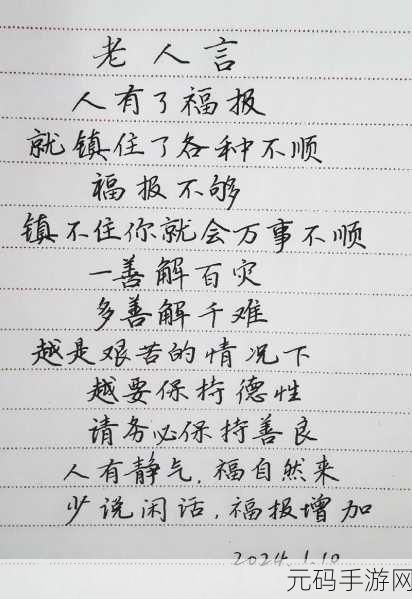 老人言
人有了福报
就镇住了各种不顺
福报不够
镇不住你就会万事不顺
一善解百灾
多善解千难
越是艰苦的情况下
越要保持德性
请务必保持善良
人有静气，福自然来
少说闲话，福报增加
2024.1.10
元码手游网